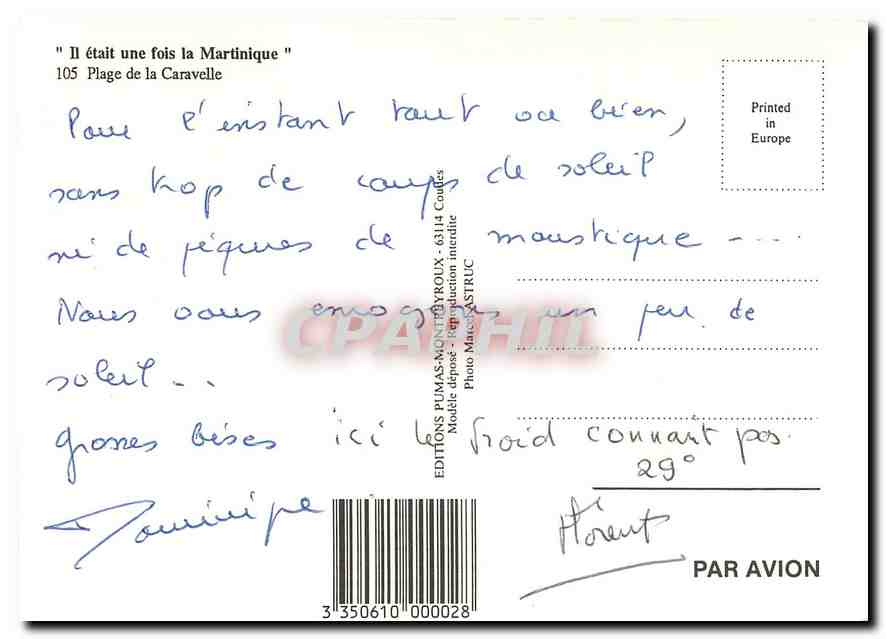 " Il était une fois la Martinique "
105 Plage de la Caravelle
Printed
in
Europe
Pour l'instant tout va bien,
sans trop de coups de soleil
ni de piqures de moustique - ...
Nous vous envoyons un peu de
soleil - ..
grosses bises ici le froid connait pas.
29°
Dominique
Florent
EDITIONS PUMAS-MONTPEYROUX - 63114 Coudes
Modèle déposé - Reproduction interdite
Photo Marcel ASTRUC
CPAPHIL
3 350610 000028
PAR AVION